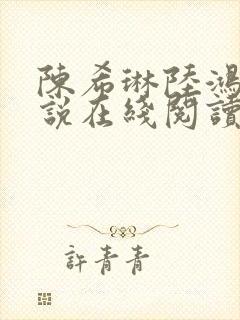 陳希琳陸鴻
說在綫閱讀
許青青